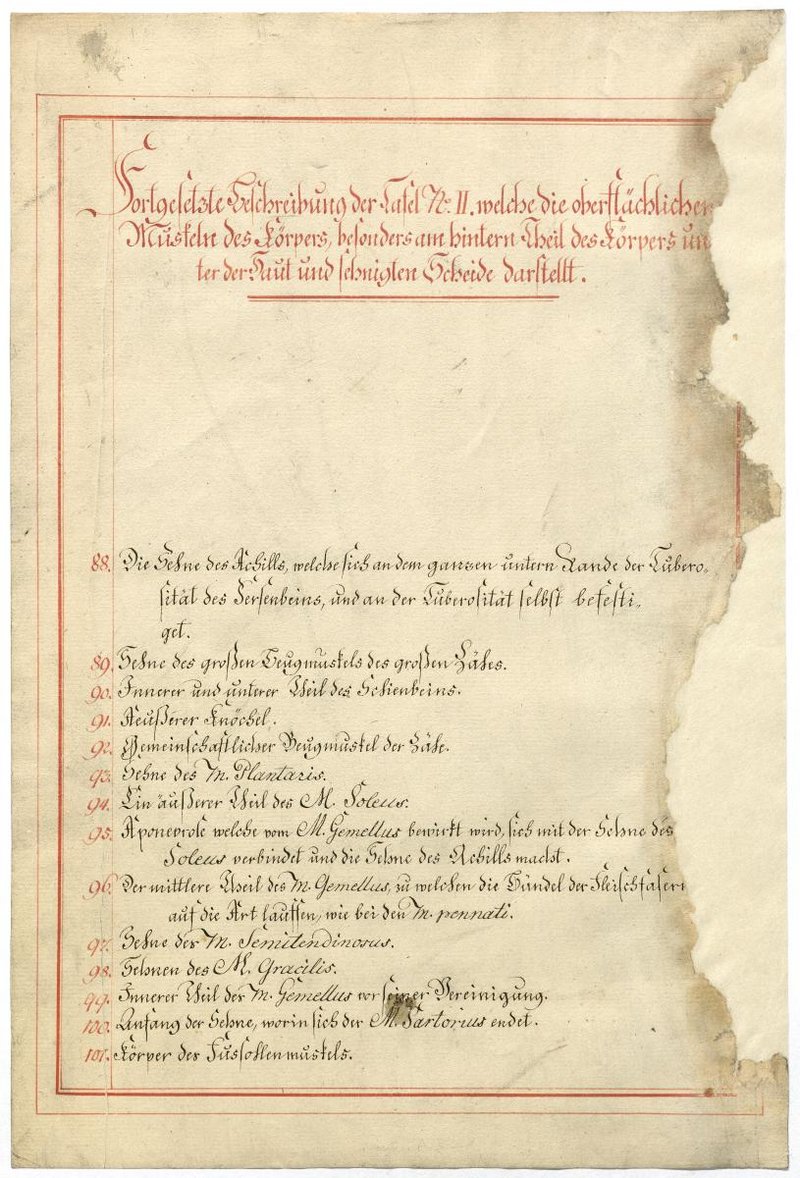 Fortgesetzte Beschreibung der Tafel No. II. welche die oberflächlichen
Muskeln des Körpers, besonders am hintern Theil des Körpers un
ter der Haut und sehnigten Scheide darstellt.
88. Die Sehne des Achills, welche sich an dem ganzen untern Rande der Tubero-
sität des Fersenbeins, und an der Tuberosität selbst befesti-
get.
89. Sehne des großen Beugmuskels des großen Zähes.
90. Innerer und unterer Theil des Schienbeins.
91. Aeußerer Knöchel.
92. Gemeinschaftlicher Beugmuskel der Zähe.
93. Sehne des M. Plantaris.
94. Ein äußerer Theil des M. Soleus.
95. Aponevrose welche vom M. Gemellus bewirkt wird, sich mit der Sehne des
Soleus verbindet und die Sehne des Achills macht.
96. Der mittlere Theil des M. Gemellus, zu welchen die Bündel der Fleischfasern
auf die Art lauffen, wie bei den M. pennati.
97. Sehne des M. Semitendinosus.
98. Sehnen des M. Gracilis.
99. Innerer Theil des M. Gemellus vor seiner Vereinigung.
100. Anfang der Sehne, worin sich der M. Sartorius endet.
101. Körper des Fussohlenmuskels.